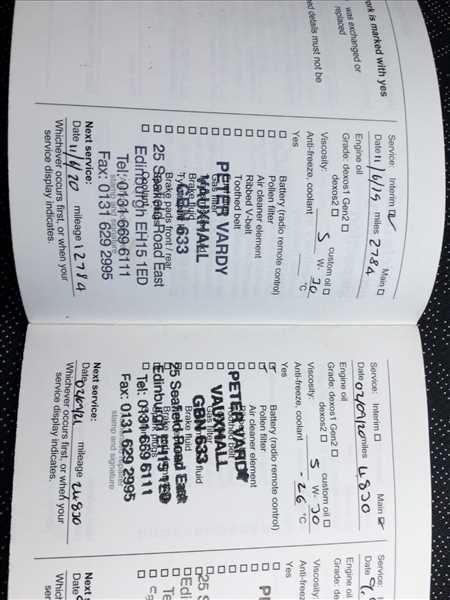 ork is marked with yes
was exchanged or
replaced
ed details must not be
Service: Interim Main
Date 11/6/19 miles 2784
Engine oil
Grade: dexos1 Gen2
dexos2 custom oil
Viscosity: 5 W- 30
Anti-freeze, coolant °C
Yes
Battery (radio remote control)
Pollen filter
Air cleaner element
Ribbed V-belt
Toothed belt
Brake fluid
Brake pads front / rear
PETER VARDY
VAUXHALL
GBN 633
25 Seafield Road East
Edinburgh EH15 1ED
Tel: 0131 669 6111
Fax: 0131 629 2995
stamp and signature
Next service:
Date 11/6/20 mileage 12784
Whichever occurs first, or when your
service display indicates.
Service: Interim Main
Date 02/07/20 miles 4830
Engine oil
Grade: dexos1 Gen2
dexos2 custom oil
Viscosity: 5 W- 30
Anti-freeze, coolant -26 °C
Yes
Battery (radio remote control)
Pollen filter
Air cleaner element
Brake fluid
PETER VARDY
VAUXHALL
GBN 633
25 Seafield Road East
Edinburgh EH15 1ED
Tel: 0131 669 6111
Fax: 0131 629 2995
stamp and signature
Next service:
mileage
Whichever occurs first, or when your
service display indicates.
Service: I
Date
Engine oil
Grade: de
Viscosity:
Anti-freez
Yes
Date
Which
service